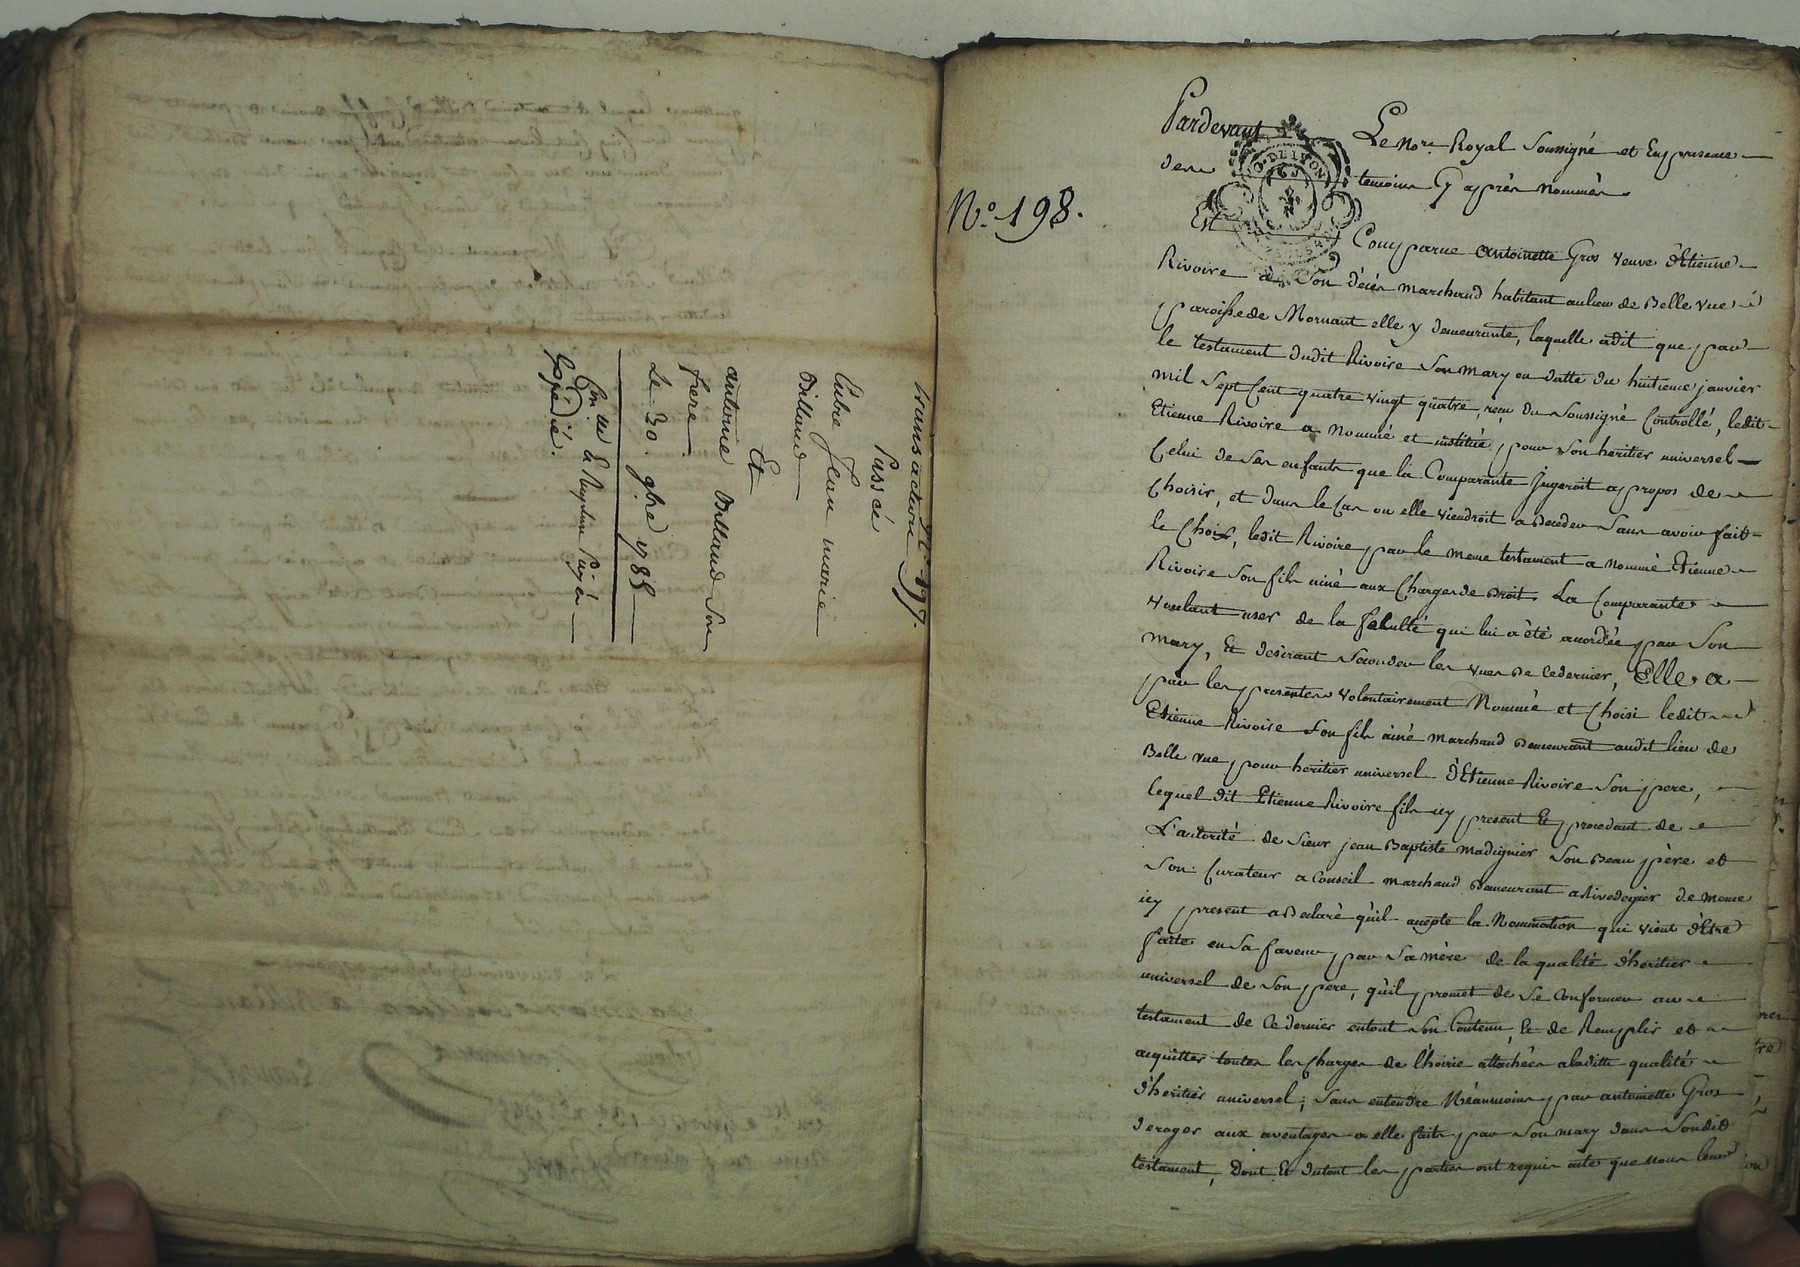 transaction n.° 197.
Passé
Entre Jean marie
Billaud
Et
Antoine Billaud son
frere
Le 30. 9bre 1785
Expédié.
N.° 198.
Pardevant Le Nore Royal Soussigné et En presence
des temoins Cy après nommés
Est Comparue Antoinette Gros veuve d'Etienne
Rivoire de son décès marchand habitant au lieu de Belle vue
paroisse de Mornant elle y demeurante, laquelle a dit que par
le testament dudit Rivoire son mary en datte du huitieme janvier
mil Sept Cent quatre vingt quatre, reçu du Soussigné Controllé, ledit
Etienne Rivoire a nommé et institué pour son heritier universel
Celui de ses enfants que la Comparante Jugeroit apropos de
Choisir, et dans le Cas ou elle viendroit a Deceder sans avoir fait
le Choix, ledit Rivoire par le meme testament a nommé Etienne
Rivoire son fils ainé aux Charges de Droit. La Comparante
voulant user de la faculté qui lui a été accordée par Son
mary, Et desirant seconder les vues de Ce dernier, Elle a
par les presentes volontairement Nommé et Choisi ledit
Etienne Rivoire son fils ainé marchand Demeurant audit lieu de
Belle vue pour heritier universel d'Etienne Rivoire son pere,
lequel dit Etienne Rivoire fils icy present Et procedant de
L'autorité de Sieur jean Baptiste madignier son Beau père et
son Curateur a Conseil marchand Demeurant a Rivedegier de meme
icy present a Declaré qu'il accepte la Nomination qui vient d'Etre
faite en sa faveur par sa mère de la qualité d'heritier
universel de son pere, qu'il promet de se Conformer au
testament de Ce dernier entout son Contenu, Et de Remplir et
acquitter toutes les Charges de l'hoirie attachées aladitte qualité
d'heritier universel; sans entendre Néanmoins par antoinette Gros
deroger aux aventages a elle faits par son mary dans Sondit
testament, Dont Et dutout les parties ont requis acte que nous leur